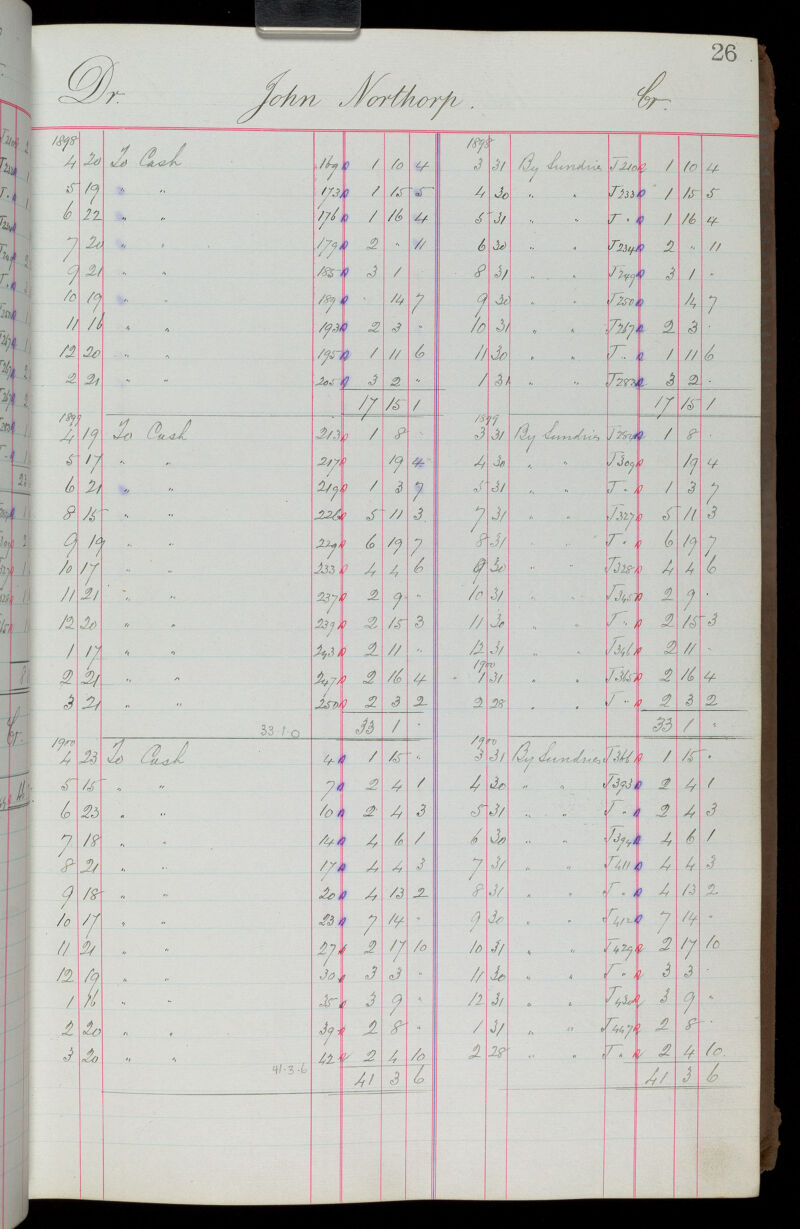 26
Dr. John Northorp. Cr.
1898 1898
4 20 To Cash 169 1 10 4 3 31 By Sundries J210 1 10 4
5 19 " " 173 1 15 5 4 30 " " J233 1 15 5
6 22 " " 176 1 16 4 5 31 " " J " 1 16 4
7 20 " " 179 2 " 11 6 30 " " J234 2 " 11
9 21 " " 185 3 1 8 31 " " J249 3 1 "
10 19 " " 189 " 14 7 9 30 " " J250 14 7
11 16 " " 193 2 3 " 10 31 " " J267 2 3 "
12 20 " " 195 1 11 6 11 30 " " J " 1 11 6
2 21 " " 205 3 2 " 1 31 " " J283 3 2 "
17 15 1 17 15 1
1899 1899
4 19 To Cash 213 1 8 " 3 31 By Sundries 1 8 "
5 17 " " 217 19 4 4 30 " " J309 19 4
6 21 " " 219 1 3 7 5 31 " " J " 1 3 7
8 15 " " 226 5 11 3 7 31 " " J327 5 11 3
9 19 " " 229 6 19 7 8 31 " " J " 6 19 7
10 17 " " 233 4 4 6 9 30 " " J328 4 4 6
11 21 " " 237 2 9 " 10 31 " " J345 2 9 "
12 20 " " 239 2 15 3 11 30 " " J " 2 15 3
1 17 " " 243 2 11 " 12 31 " " J346 2 11 "
1900
2 21 " " 247 2 16 4 1 31 " " J365 2 16 4
3 21 " " 250 2 3 2 2 28 " " J " 2 3 2
33-1-0 33 1 " 33 1 "
1900 1900
4 23 To Cash 4 1 15 " 3 31 By Sundries J366 1 15 "
5 15 " " 7 2 4 1 4 30 " " J393 2 4 1
6 23 " " 10 2 4 3 5 31 " " J " 2 4 3
7 18 " " 14 4 6 1 6 30 " " J394 4 6 1
8 21 " " 17 4 4 3 7 31 " " J411 4 4 3
9 18 " " 20 4 13 2 8 31 " " J " 4 13 2
10 17 " " 23 7 14 " 9 30 " " J412 7 14 "
11 21 " " 27 2 17 10 10 31 " " J429 2 17 10
12 19 " " 30 3 3 " 11 30 " " J " 3 3 "
1 16 " " 35 3 9 " 12 31 " " J430 3 9 "
2 20 " " 39 2 8 " 1 31 " " J447 2 8 "
3 20 " " 42 2 4 10 2 28 " " J " 2 4 10
41-3-6 41 3 6 41 3 6